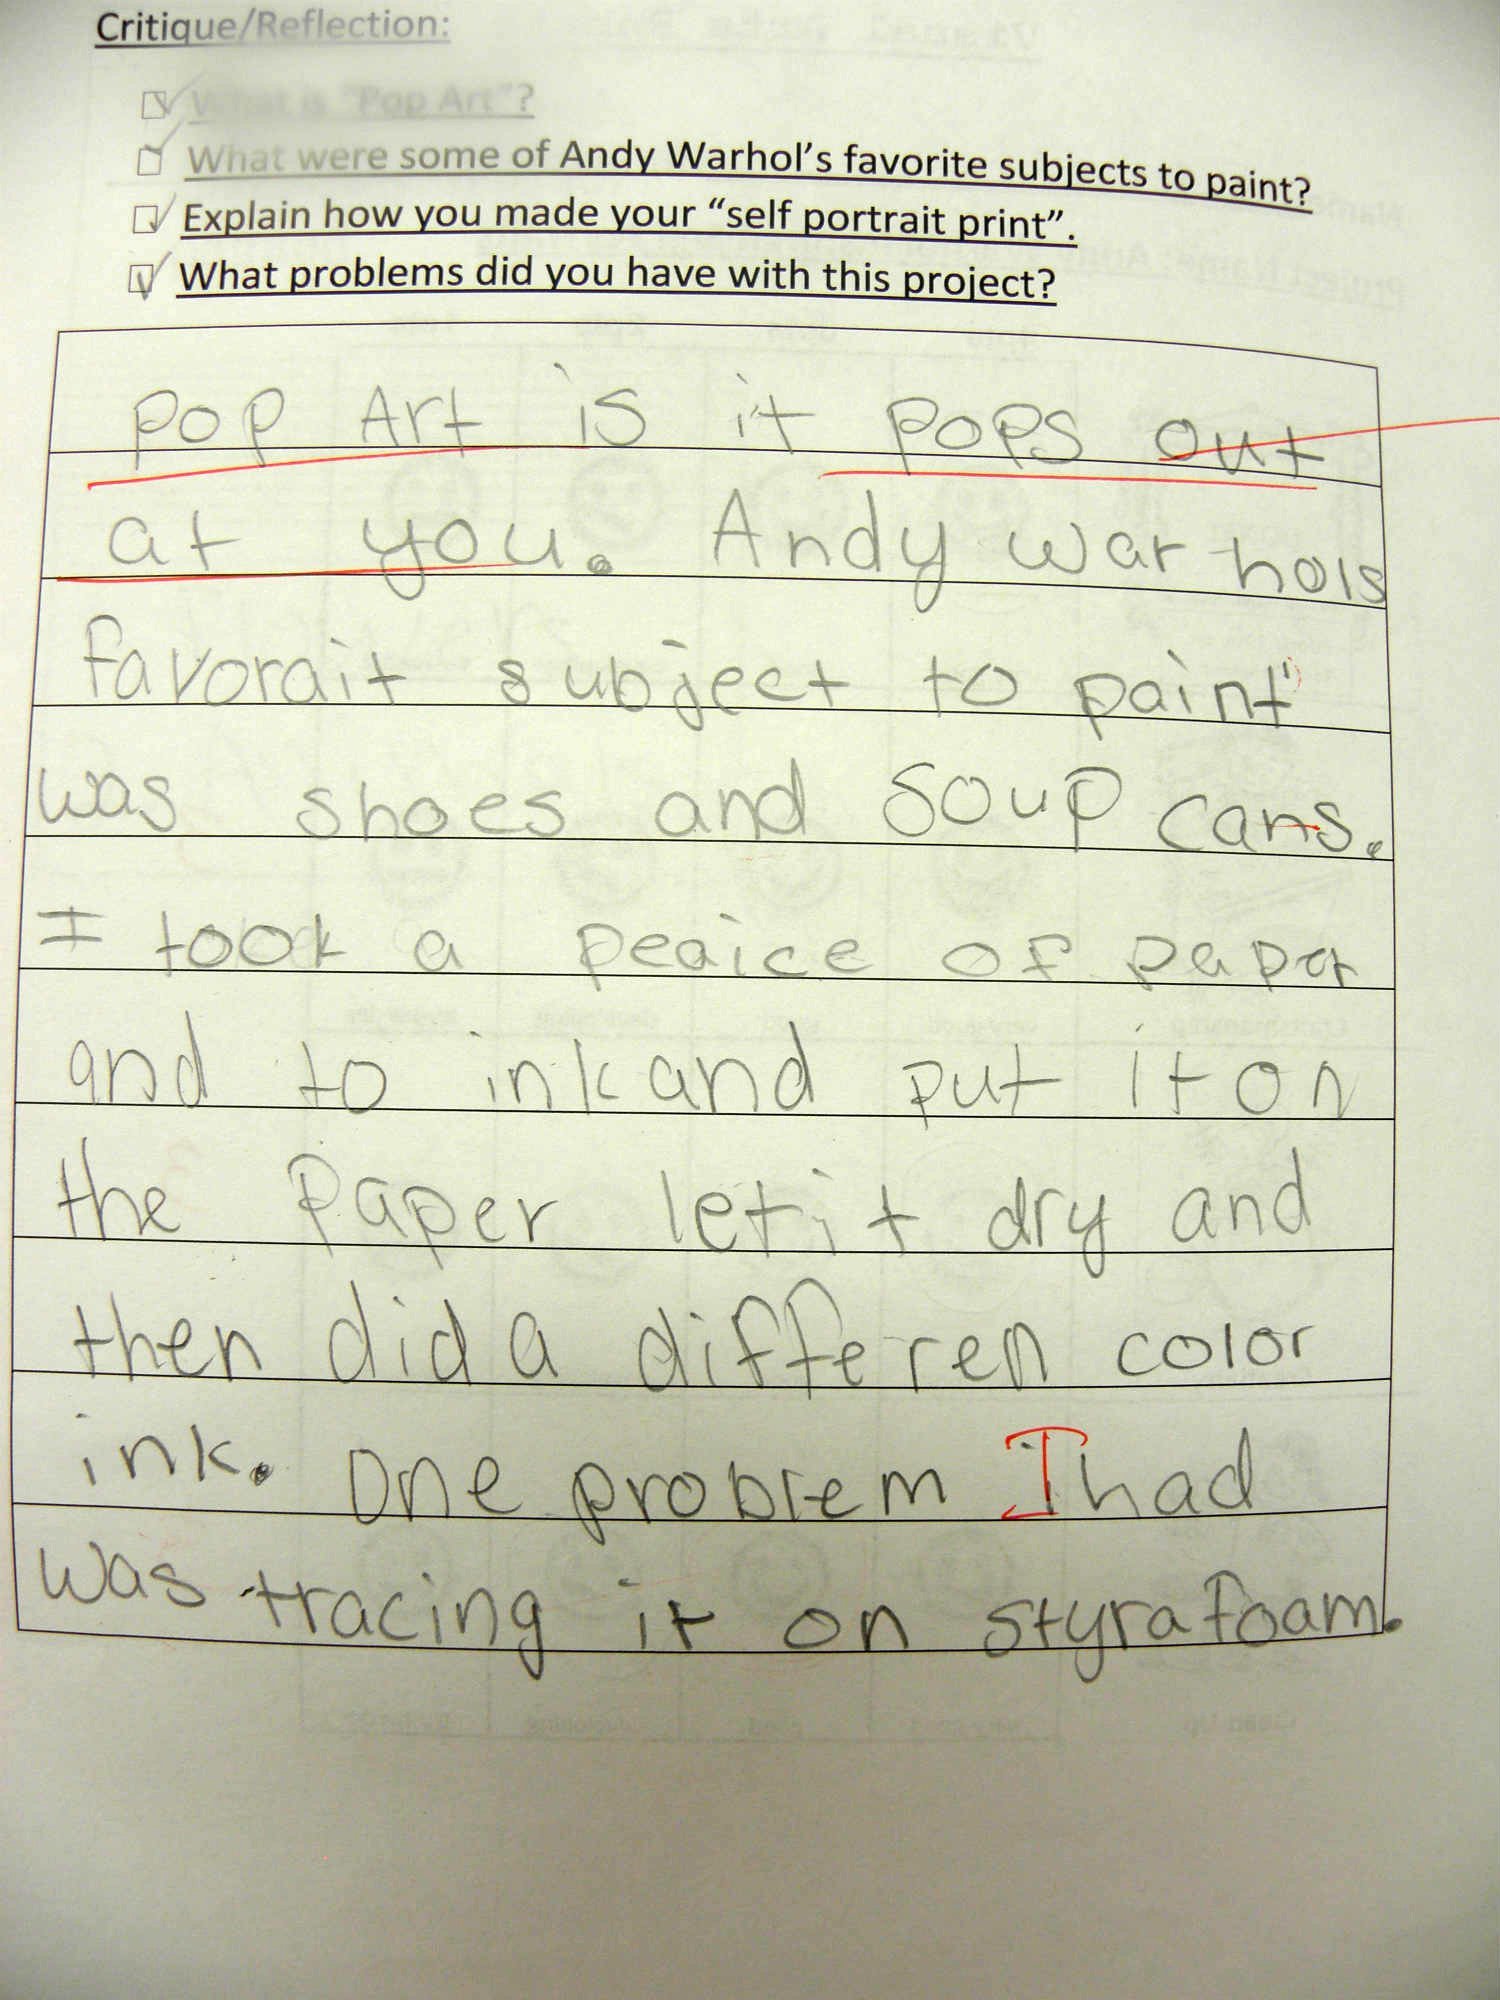 Critique/Reflection:
What is "Pop Art"?
What were some of Andy Warhol's favorite subjects to paint?
Explain how you made your "self portrait print".
What problems did you have with this project?
pop Art is it pops out
at you. Andy war hols
favorait subject to paint
was shoes and soup cans.
I took a peaice of paper
and to ink and put it on
the paper let it dry and
then did a differen color
ink. One problem I had
was tracing it on styrafoam.